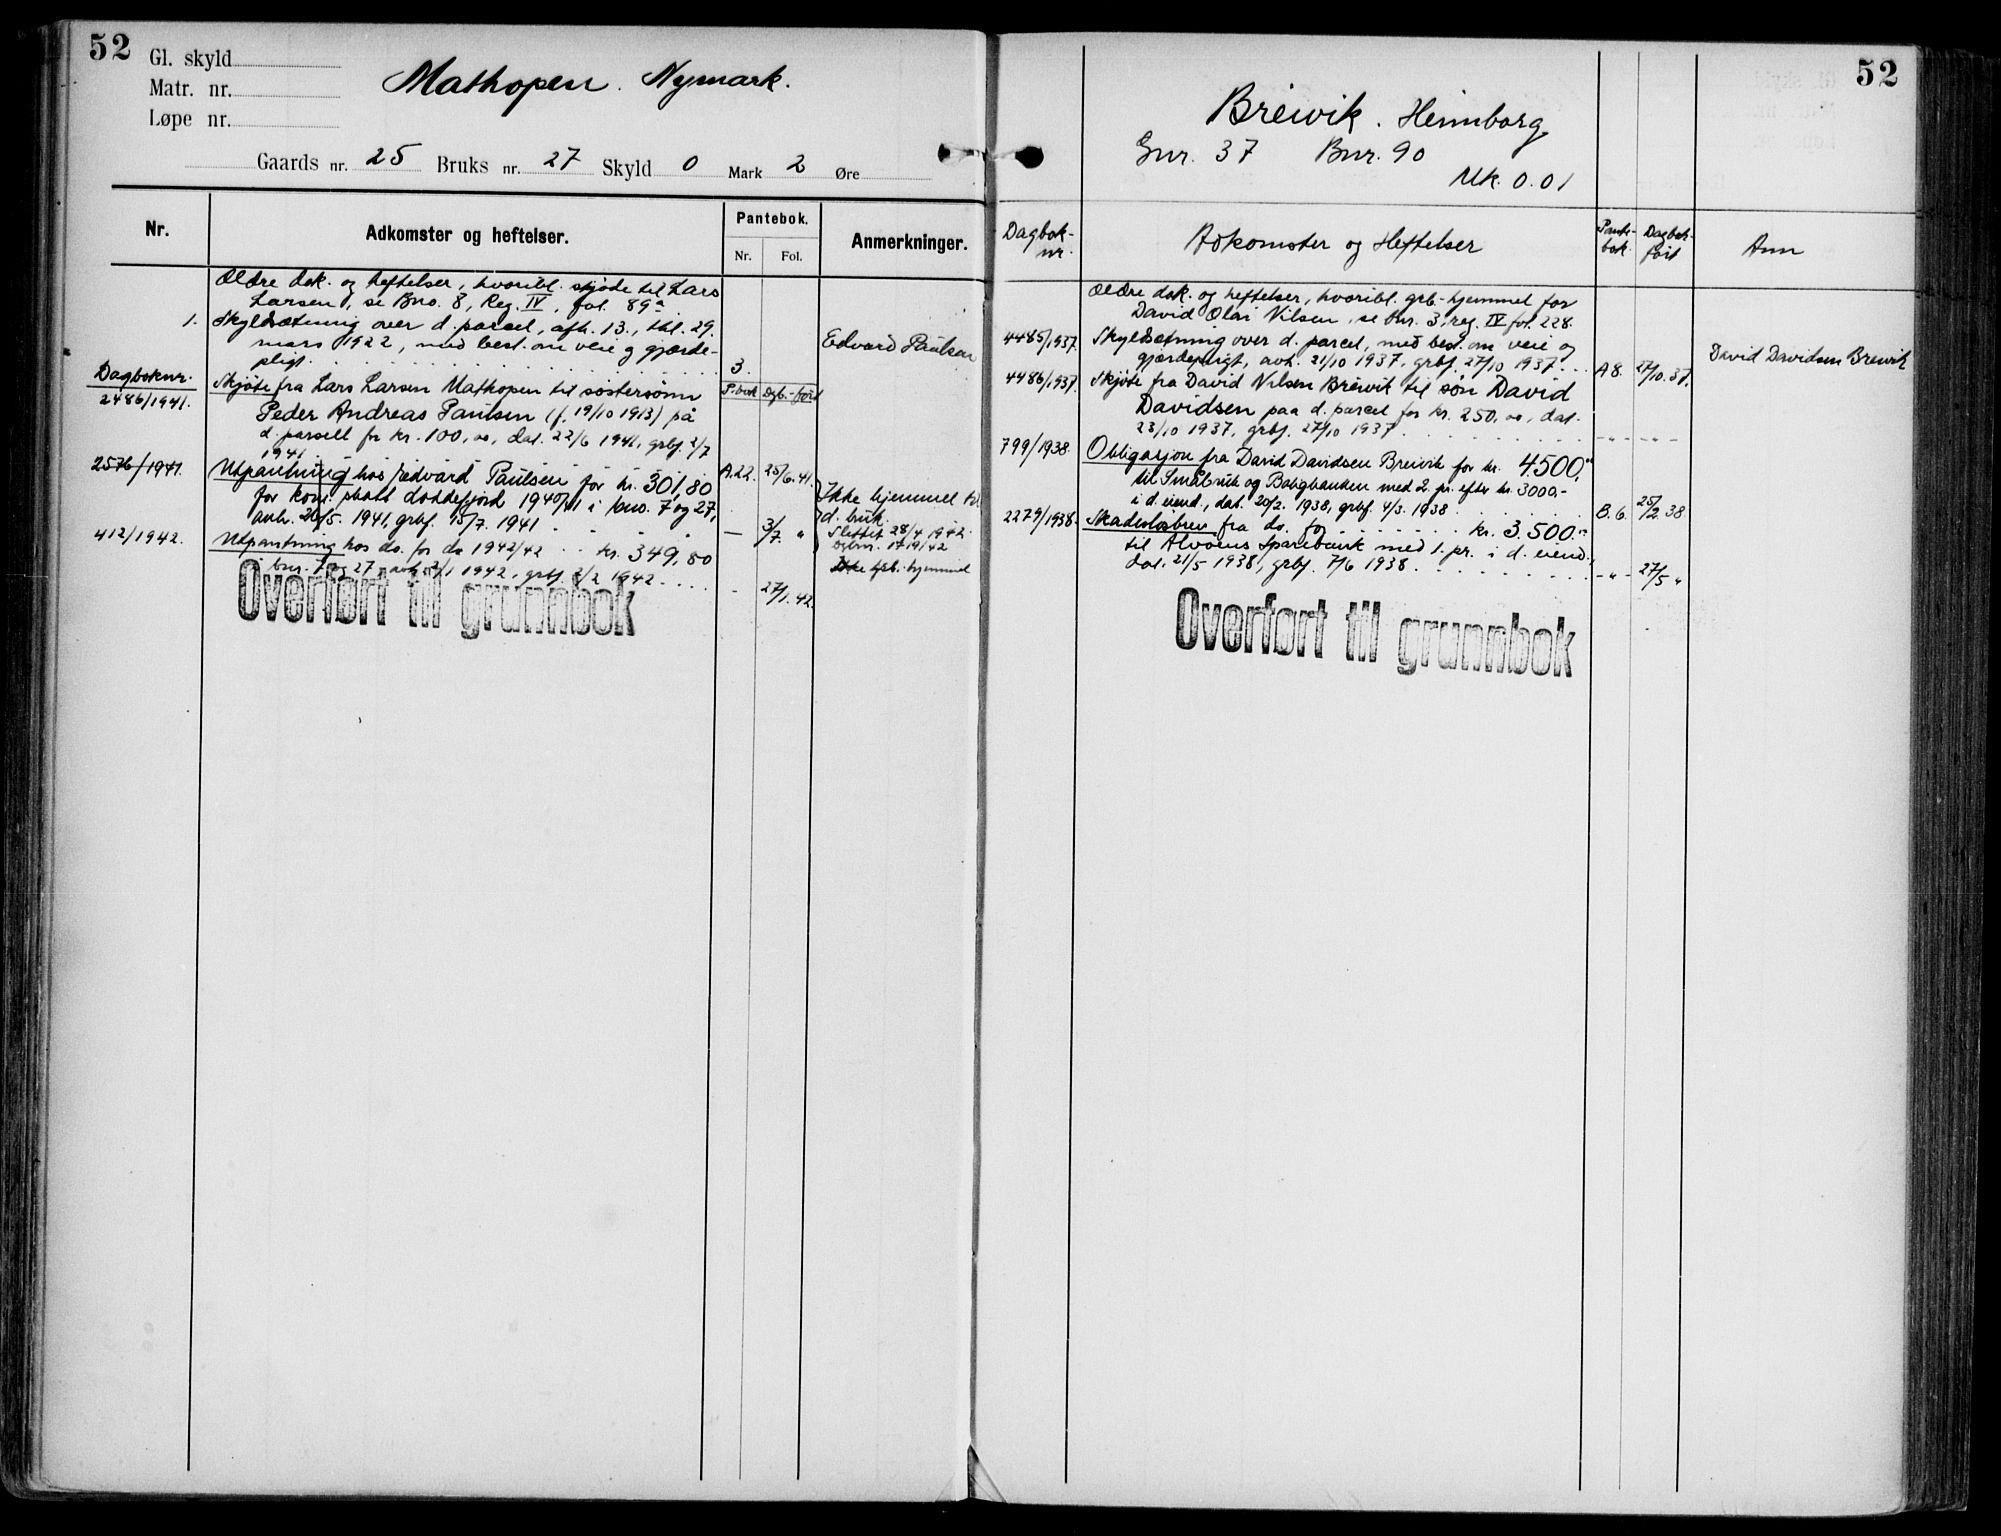 52
Gl. skyld
Matr. nr.
Løpe nr.
Mathopen. Nymark.
Gaards nr. 25 Bruks nr. 27 Skyld 0 Mark 2 Øre
Nr.
Adkomster og heftelser.
Pantebok.
Nr. Fol.
Anmerkninger.
Ældre dok. og heftelser, hvoribl. skjøde til Lars
Larsen, se Bno. 8, Reg. IV, fol. 89a
1. Skyldsætning over d. parcel, afh. 13., tbl. 29.
mars 1922, med best. om veie og gjærde-
pligt. 3.
Edvard Paulsen
Dagboknr. P.bok Dgb.-ført
2486/1941. Skjøte fra Lars Larsen Mathopen til søstersønn
Peder Andreas Paulsen (f. 19/10 1913) på
d. parsell for kr. 100,00, dat. 22/6 1941, grbf. 2/7
1941 A.22. 25/6.41.
2576/1941. Utpantning hos Edvard Paulsen for kr. 301,80
for kom. skatt Laksevåg 1940/41 i bno. 7 og 27,
avh. 20/5. 1941, grbf. 15/7. 1941 — 3/7. "
Ikke hjemmel til
d. bruk.
Slettet 28/4 1942.
Dgbnr. 1719/42
412/1942. Utpantning hos do. for do 1942/42 kr. 349,80
bnr. 7 og 27 avh. 2/1 1942, grbf. 2/2 1942 - 27/1.42.
Ikke hjemmel
Overført til grunnbok
52
Breivik. Heimborg
Gnr. 37 Bnr. 90
Mk. 0.01
Dagbok-
nr.
Adkomster og Heftelser
Pante-
bok.
Dagbok-
ført
Anm
Ældre dok. og heftelser, hvoribl. grb.-hjemmel for
David Olai Nilsen, se bnr. 3, reg. IV fol. 228.
4485/1937. Skyldsetning over d. parcel, med best. om veie og
gjærdepligt, avh. 21/10 1937, grbf. 27/10 1937. A8. 27/10.37.
David Davidsen Breivik
4486/1937. Skjøte fra David Nilsen Breivik til søn David
Davidsen paa d. parcel for kr. 250,00, dat.
23/10 1937, grbf. 27/10 1937 -"- -"-
799/1938. Obligasjon fra David Davidsen Breivik for kr. 4500,-
til Småbruk og Boligbanken med 2. pr. efter kr. 3000,-
i d. eiend., dat. 20/2. 1938, grbf. 4/3. 1938 B.6. 25/2.38
2279/1938. Skadesløsbrev fra do. for kr. 3.500.-
til Alvøens Sparebank med 1. pr. i d. eiend.,
dat. 21/5 1938, grbf. 7/6 1938 -"- 27/5 "
Overført til grunnbok